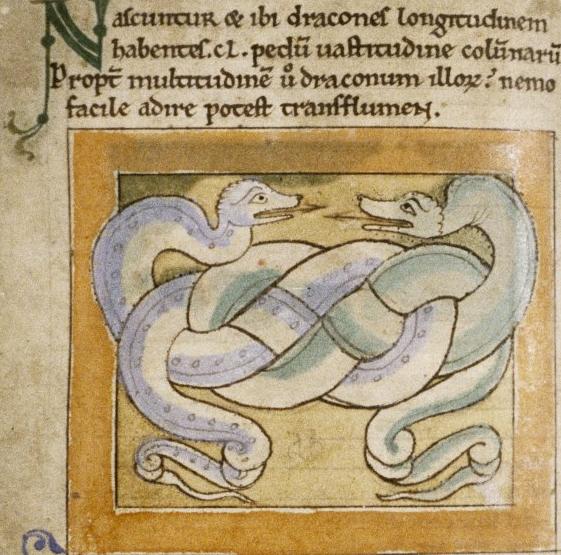 Nascuntur & ibi dracones longitudinem
habentes .cL. pedū uastitudine colūnarū
Propt̄ multitudinē ů draconum illoꝝ; nemo
facile adire potest transflumen.